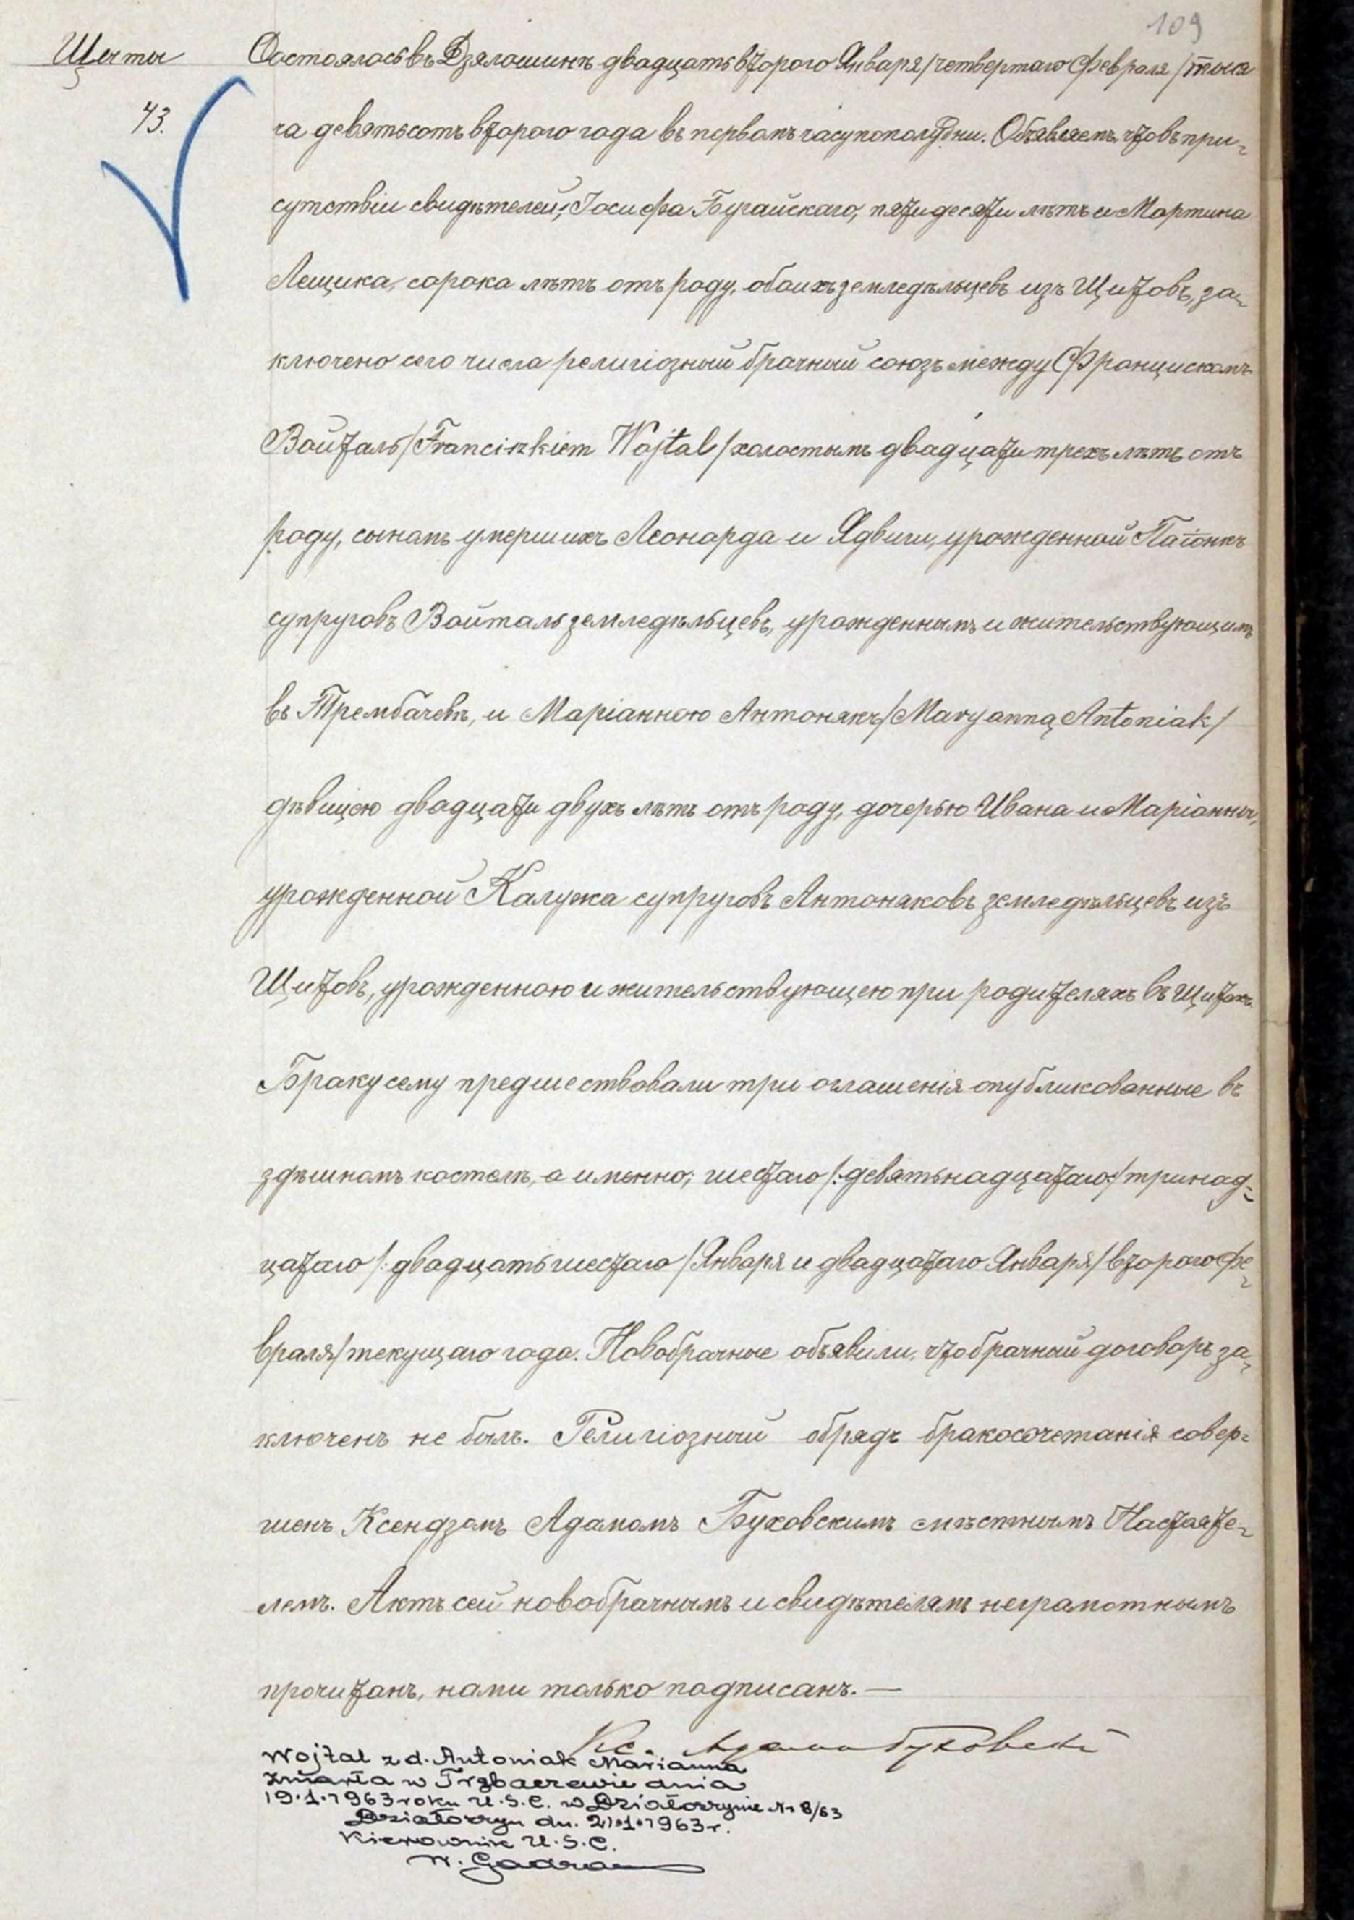 109
Щиты
43.
Состоялось въ Дзялошинѣ двадцать второго Января /четвертаго Февраля/ тыся
ча девятьсотъ второго года въ первомъ часу пополудни. Объявляемъ, что въ при-
сутствіи свидѣтелей, Іосифа Бугайскаго, пятидесяти лѣтъ и Мартина
Лещика, сорока лѣтъ отъ роду, обоихъ земледѣльцевъ изъ Щитовъ, за-
ключено сего числа религіозный брачный союзъ между Францискомъ
Войталь /Franciszkiem Wojtal/ холостымъ двадцати трехъ лѣтъ отъ
роду, сыномъ умершихъ Леонарда и Ядвиги, урожденной Паіонкъ
супруговъ Войталь земледѣльцевъ, урожденнымъ и жительствующимъ
въ Трембачевѣ, и Маріанною Антонякъ /Maryanną Antoniak/
дѣвицею двадцати двухъ лѣтъ отъ роду, дочерью Ивана и Маріанны,
урожденной Калужа супруговъ Антоняковъ земледѣльцевъ изъ
Щитовъ, урожденною и жительствующею при родителяхъ въ Щитахъ.
Браку сему предшествовали три оглашенія опубликованные въ
здѣшномъ костелѣ, а именно; шестаго /:девятьнадцатаго:/ тринад-
цатаго /:двадцать шестаго/ Января и двадцатаго Января /второго Фе-
враля/ текущаго года. Новобрачные объявили, что брачный договоръ за-
ключенъ не былъ. Религіозный обрядъ бракосочетанія совер-
шенъ Ксендзомъ Адамомъ Буховскимъ мѣстнымъ Настояте-
лемъ. Актъ сей новобрачнымъ и свидѣтелямъ неграмотнымъ
прочитанъ, нами только подписанъ. —
Кс. Адамъ Буховскій
Wojtal z d. Antoniak Marianna
zmarła w Trębaczewie dnia
19.1.1963 roku U.S.C. w Działoszynie Nr 8/63
Działoszyn dn. 21.1.1963 r.
Kierownik U.S.C.